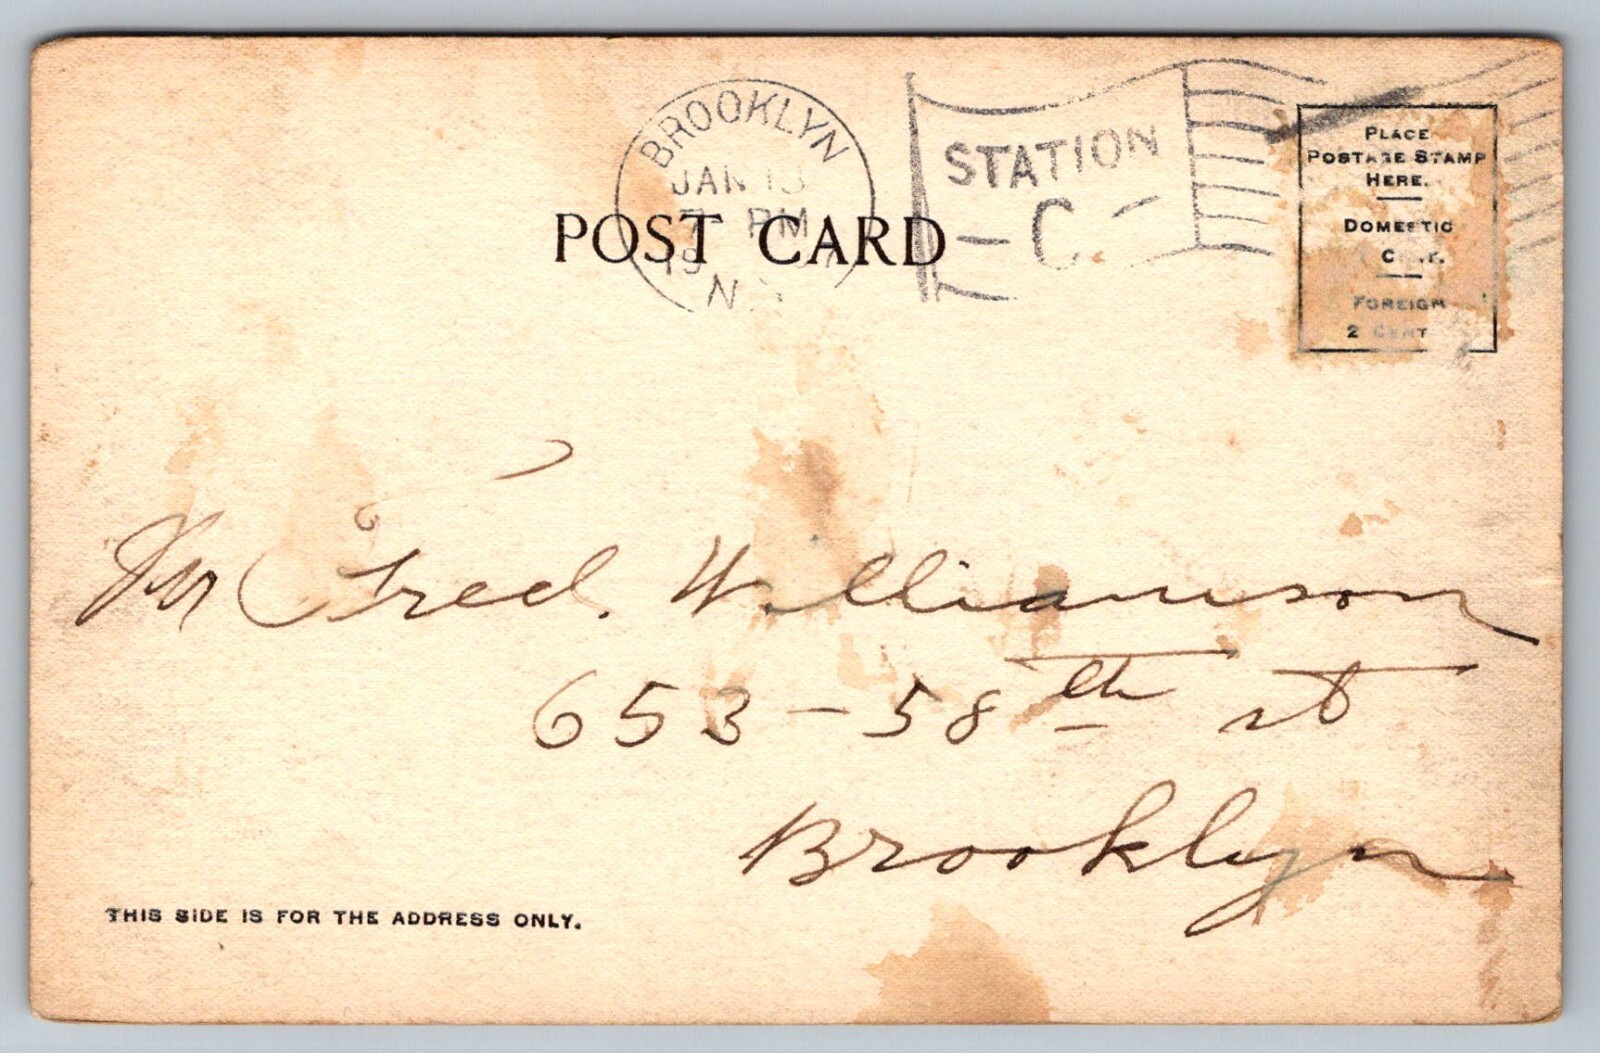 BROOKLYN
JAN 13
7 PM
19
N.
STATION
C.
POST CARD
PLACE
POSTAGE STAMP
HERE.
DOMESTIC
FOREIGN
2 CENT
Mr Fred. Williamson
653 - 58th st
Brooklyn
THIS SIDE IS FOR THE ADDRESS ONLY.